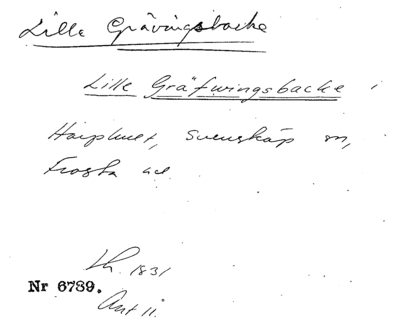 Lille Grävingsbacke
Lille Gräfwingsbacke i
Harphult, Svensköp sn,
Frosta hd
Lh. 1831
Nr 6789.
Ant 11.